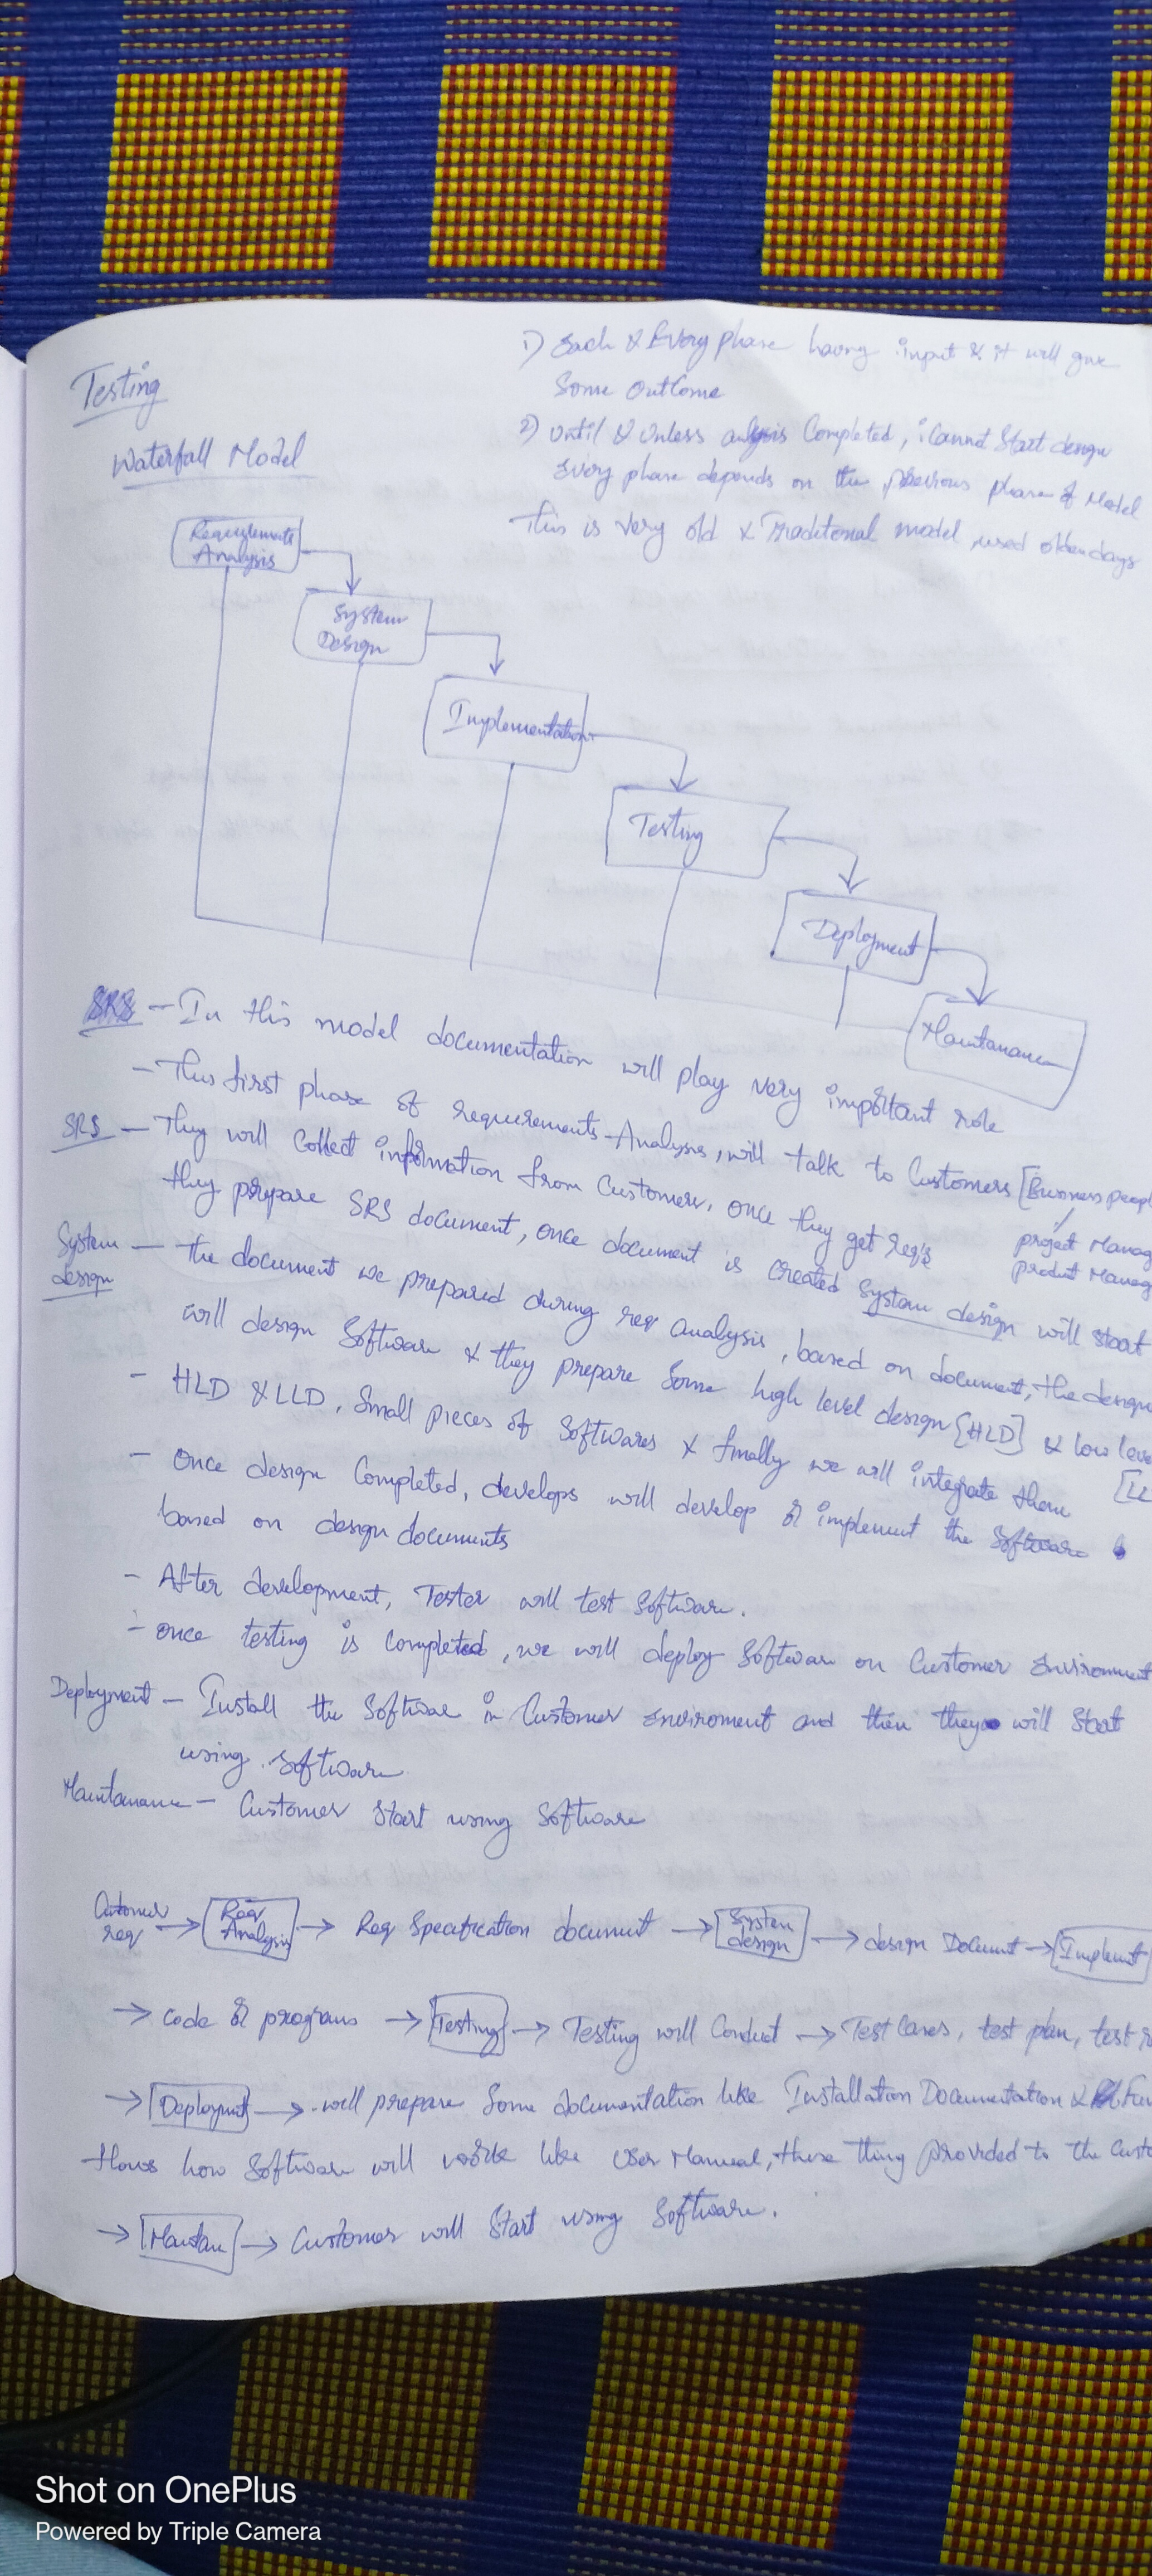 Testing
Waterfall Model
1) Each & Every phase having input & it will give
Some Outcome
2) Until & Unless analysis Completed, i Cannot Start design
Every phase depends on the previous phase of Model
This is very old & Traditional model used olden days
Requirements
Analysis
System
Design
Implementation
Testing
Deployment
Maintanance
SRS - In this model documentation will play very important role
- This first phase of requirements Analysis, will talk to Customers [Business peopl
project Manag
product Manag
SRS - They will Collect information from Customer, once they get req's
they prepare SRS document, once document is created System design will start
System design - the document we prepared during req analysis, based on document, the design
will design Software & they prepare Some high level design [HLD] & low leve
[LL
- HLD & LLD, Small pieces of Softwares & finally we will integrate them
- Once design Completed, develops will develop & implement the Software
based on design documents
- After development, Tester will test Software.
- once testing is Completed, we will deploy Software on Customer Environment
Deployment - Install the Software in Customer Enviroment and then they will Start
using Software
Maintanance - Customer Start using Software
Customer req → Req Analysis → Req Specification document → System design → design Document → Implemt
→ Code & programs → Testing → Testing will Conduct → Test Cases, test plan, test r
→ Deploymnt → will prepare Some documentation like Installation Documentation &
how Software will work like User Manual, these thing provided to the Custo
→ Maintan → Customer will Start using Software.
Shot on OnePlus
Powered by Triple Camera